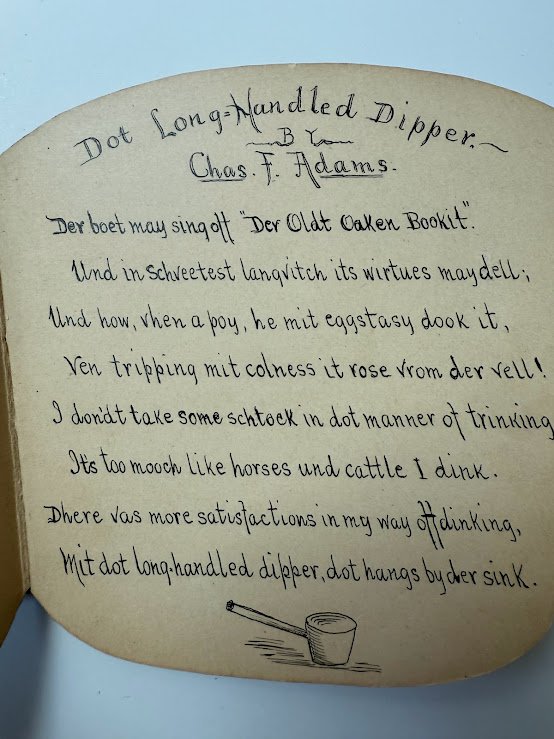 Dot Long-Handled Dipper.
By
Chas. F. Adams.
Der boet may sing off "Der Oldt Oaken Bookit".
Und in schveetest langvitch its wirtues may dell;
Und how, vhen a poy, he mit eggstasy dook it,
Ven tripping mit colness it rose vrom der vell!
I don'dt take some schtock in dot manner of trinking
It's too mooch like horses und cattle I dink.
Dhere vas more satisfactions in my way off dinking,
Mit dot long-handled dipper, dot hangs by der sink.